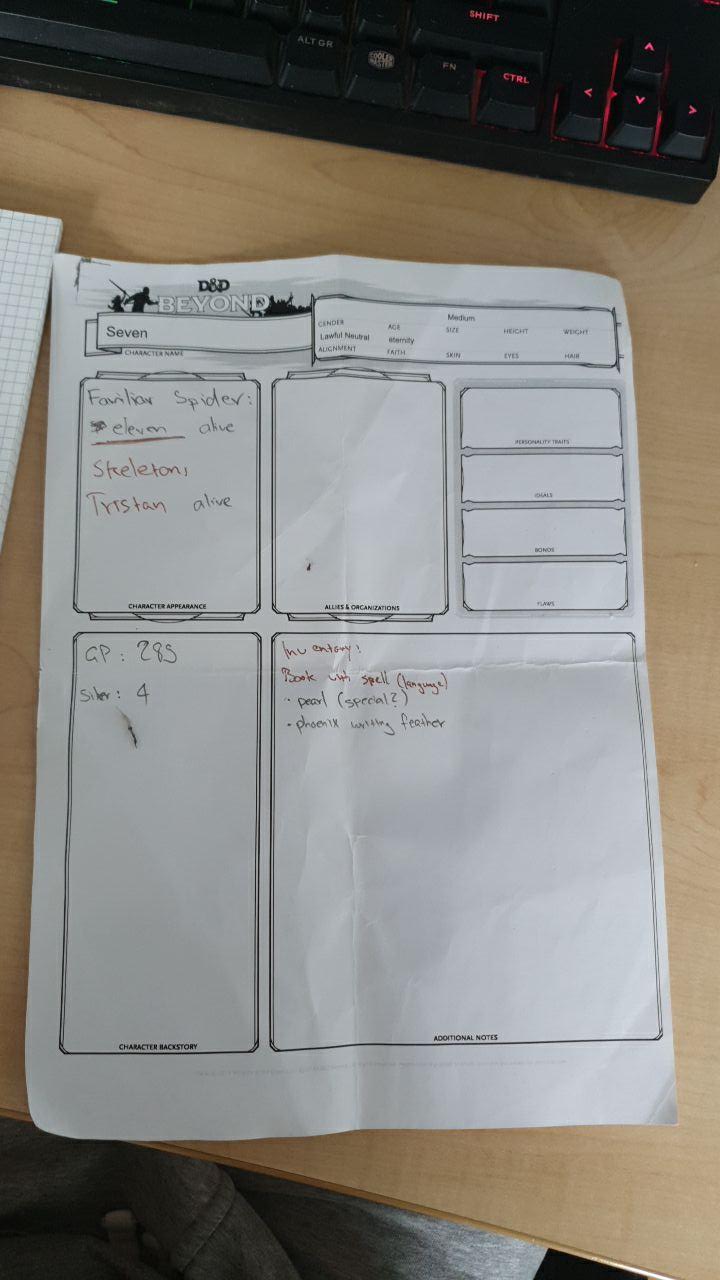 SHIFT
ALT GR
COOLER MASTER
FN
CTRL
D&D
BEYOND
Seven
CHARACTER NAME
Medium
GENDER AGE SIZE HEIGHT WEIGHT
Lawful Neutral eternity
ALIGNMENT FAITH SKIN EYES HAIR
Familiar Spider:
eleven alive
Skeletons
Tristan alive
CHARACTER APPEARANCE
ALLIES & ORGANIZATIONS
PERSONALITY TRAITS
IDEALS
BONDS
FLAWS
GP: 285
Silver: 4
CHARACTER BACKSTORY
Inventory:
Book with spell (language)
· pearl (special?)
· phoenix writing feather
ADDITIONAL NOTES